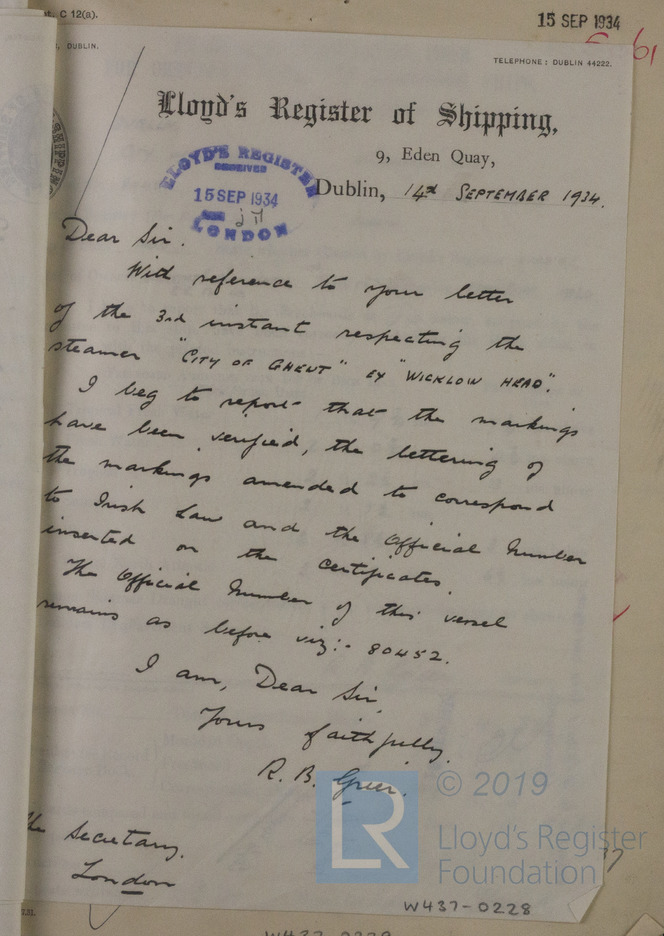 C 12(a).
15 SEP 1934
61
DUBLIN.
TELEPHONE: DUBLIN 44222.
Lloyd's Register of Shipping,
9, Eden Quay,
Dublin, 14th SEPTEMBER 1934.
LLOYD'S REGISTER
RECEIVED
15 SEP 1934
LONDON
Dear Sir.
With reference to your letter
of the 3rd instant respecting the
steamer "CITY OF GHENT" EX "WICKLOW HEAD".
I beg to report that the markings
have been verified, the lettering of
the markings amended to correspond
to Irish Law and the Official Number
inserted on the certificates.
The Official Number of this vessel
remains as before viz:- 80452.
I am, Dear Sir,
Yours faithfully.
R. B. Greer.
The Secretary.
London
LR
© 2019
Lloyd's Register
Foundation
W437-0228